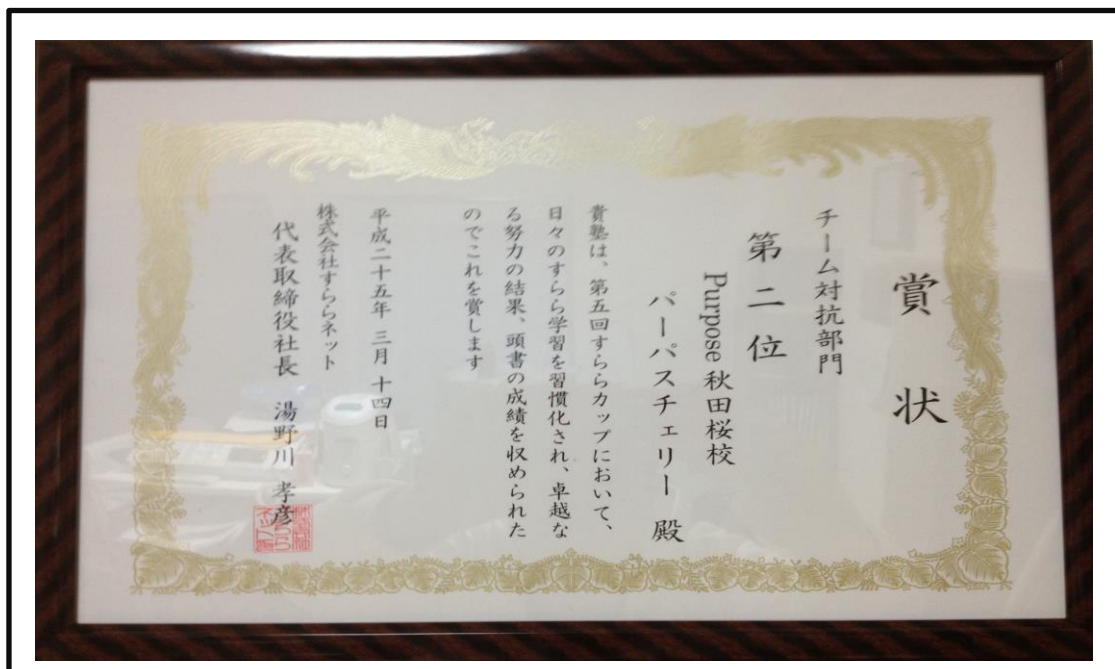 賞状
チーム対抗部門
第二位
Purpose 秋田桜校
パーパスチェリー 殿
貴塾は、第五回すららカップにおいて、
日々のすらら学習を習慣化され、卓越な
る努力の結果、頭書の成績を収められた
のでこれを賞します
平成二十五年 三月 十四日
株式会社すららネット
代表取締役社長 湯野川 孝彦